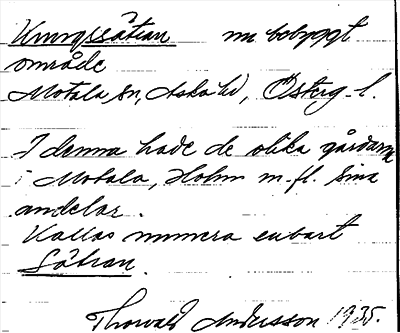 Kungssätran nu bebyggt
område
Motala sn, Aska hd, Österg. l.
I denna hade de olika gårdarna
i Motala, Holm m.fl. sina
andelar.
Kallas numera enbart
Sätran.
Thorvald Andersson 1935.